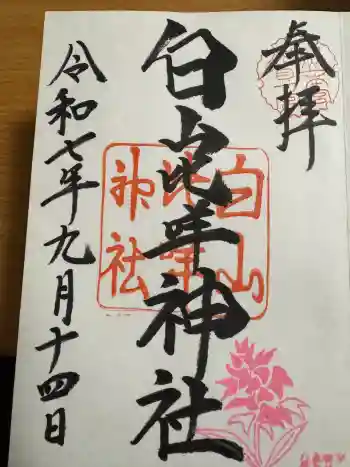 奉拝
白山比咩神社
令和七年九月十四日
白山
比咩
神社